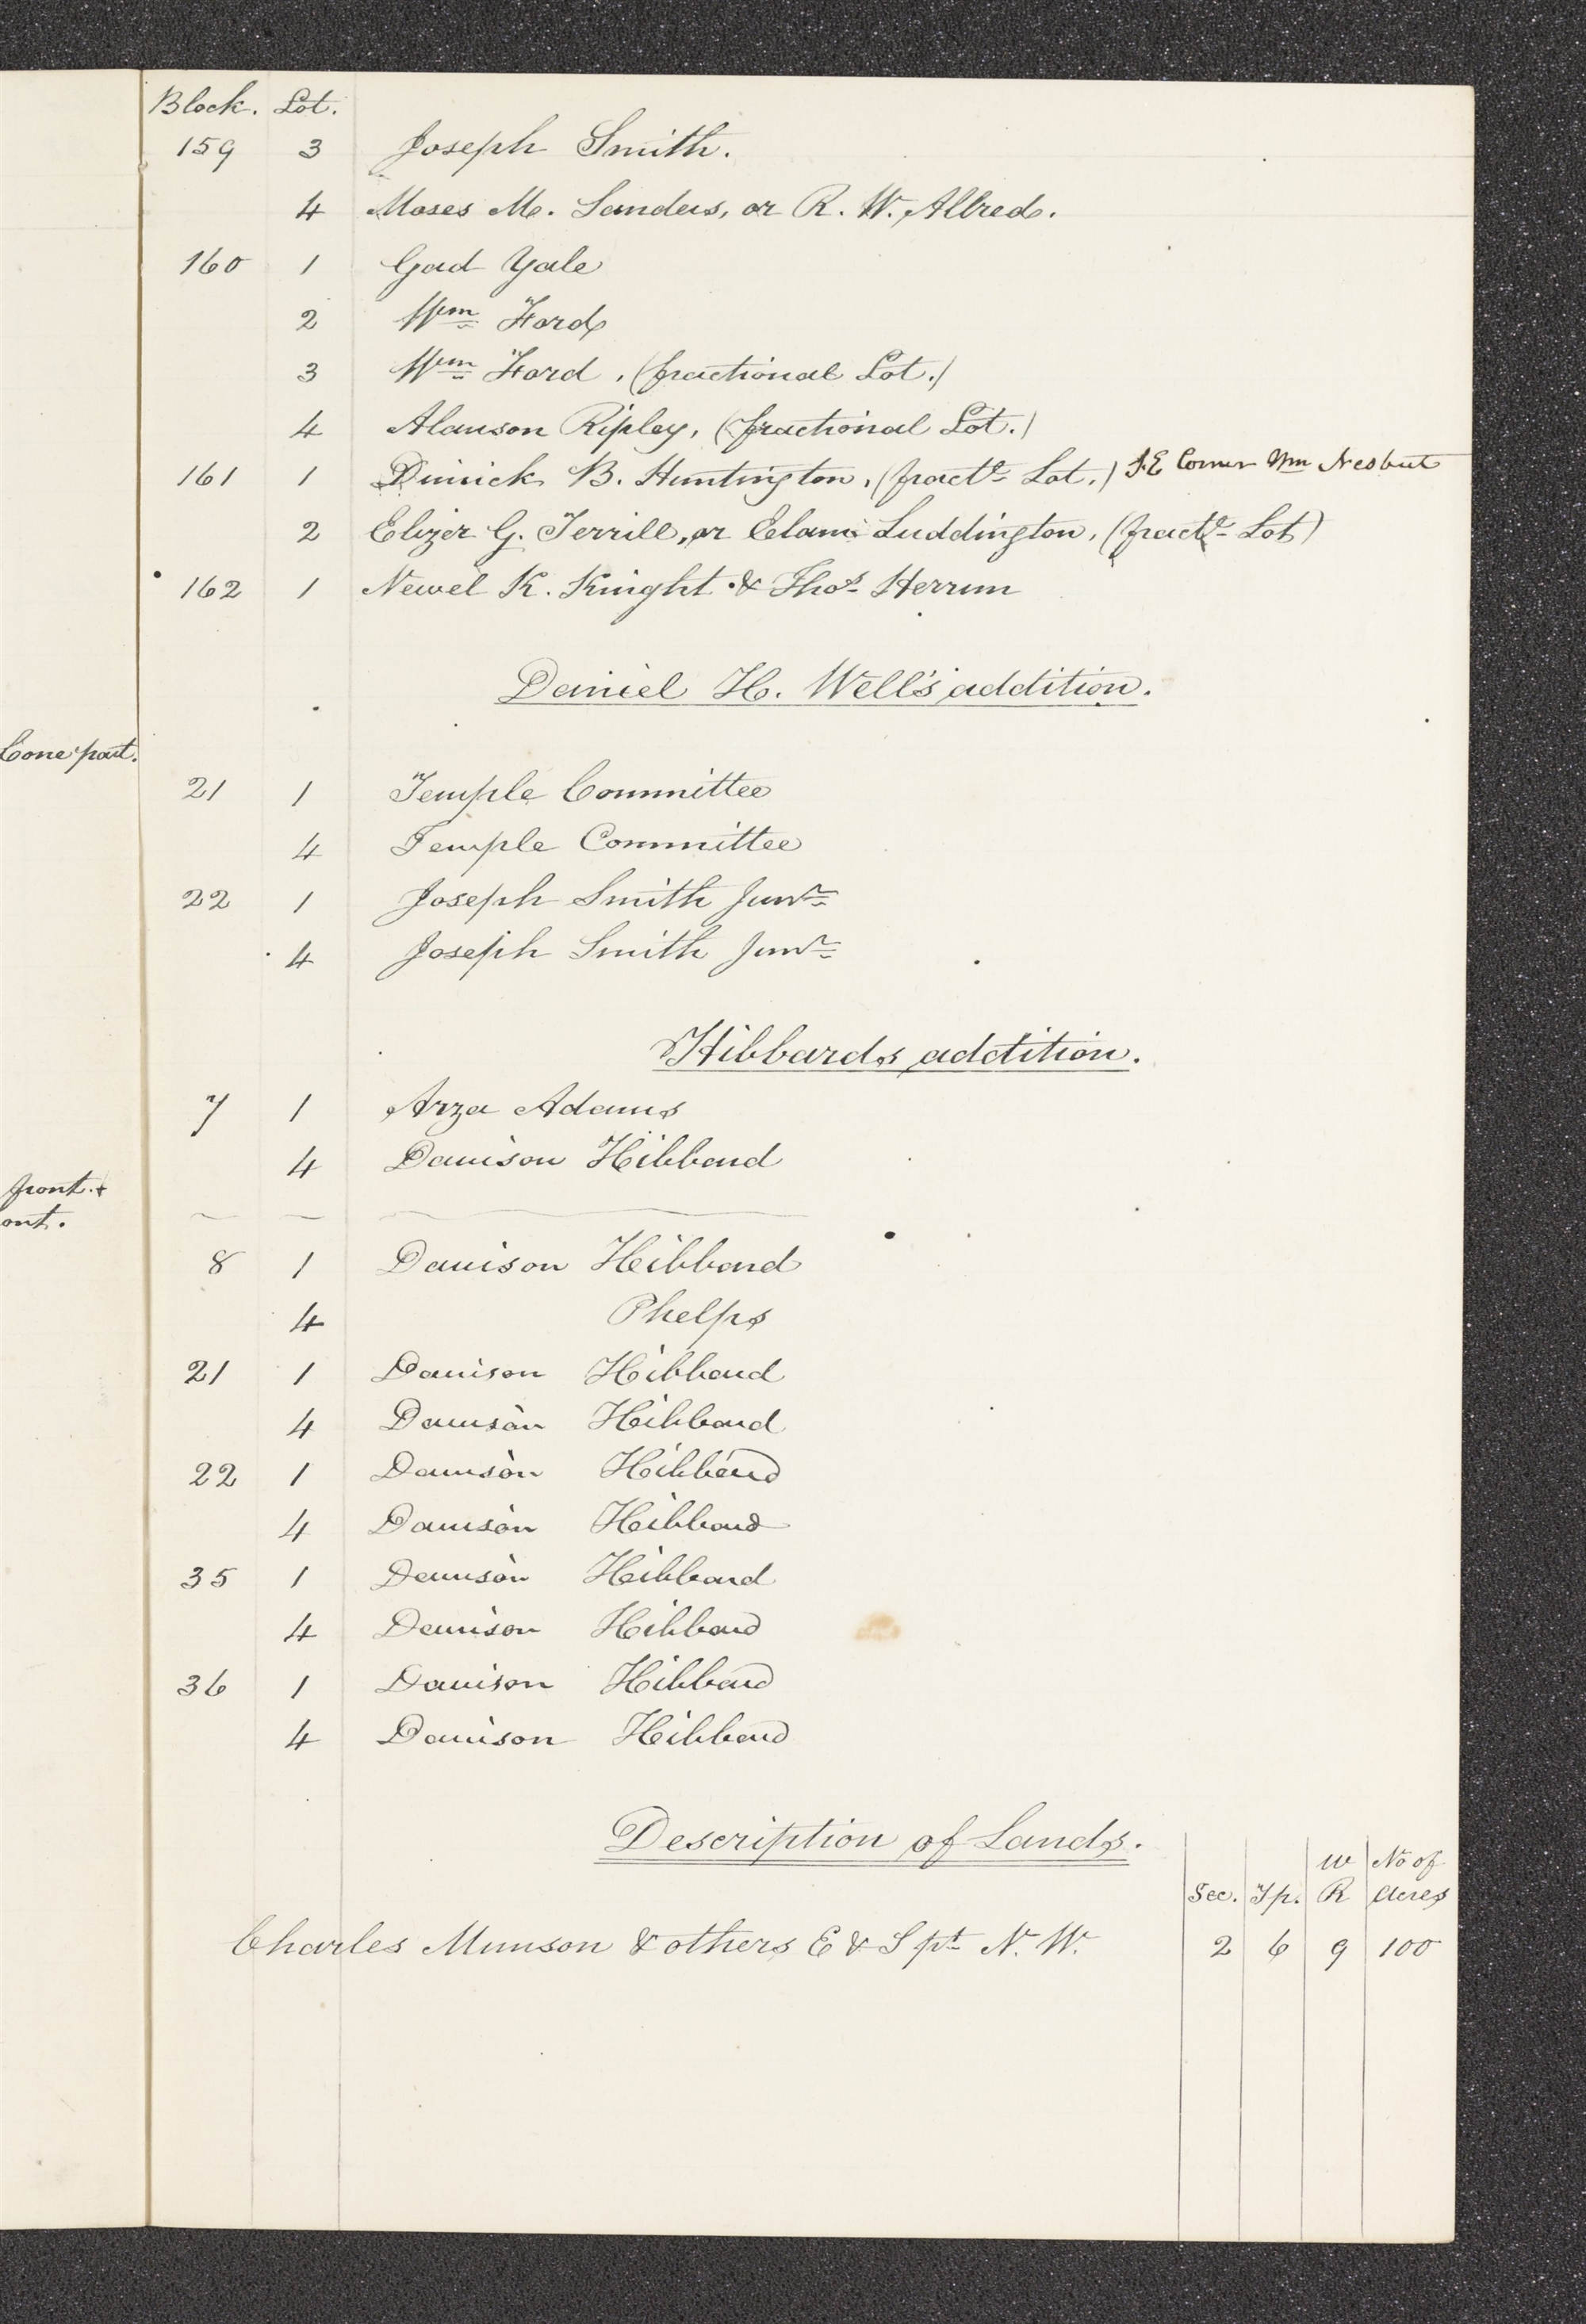 Block. Lot.
159 3 Joseph Smith.
4 Moses M. Sanders, or R. W. Allred.
160 1 Gad Yale
2 Wm Ford
3 Wm Ford, (fractional Lot.)
4 Alanson Ripley, (fractional Lot.)
161 1 Dimick B. Huntington, (fractl Lot.) S.E Corner Wm Nesbut
2 Elizer G. Terrill, or Elam Luddington, (fractl Lot)
162 1 Newel K. Knight & Thos Herrim
Daniel H. Well's addition.
Cone part.
21 1 Temple Committee
4 Temple Committee
22 1 Joseph Smith Junr
4 Joseph Smith Junr
Hibbards addition.
7 1 Arza Adams
4 Davison Hibbard
front. &
ont.
8 1 Davison Hibbard
4 Phelps
21 1 Davison Hibbard
4 Davison Hibbard
22 1 Davison Hibbard
4 Davison Hibbard
35 1 Davison Hibbard
4 Davison Hibbard
36 1 Davison Hibbard
4 Davison Hibbard
Description of Lands.
Sec. Tp. W R No of Acres
Charles Munson & others E & S pt N. W. 2 6 9 100